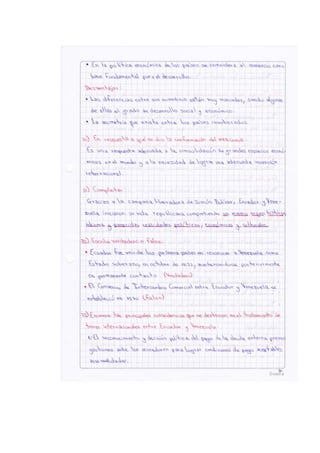 • En la política económica de los países se considera al comercio como
base fundamental para el desarrollo.
Desventajas:
• Las diferencias entre sus economías están muy marcadas, siendo alguna
de ellas el grado de desarrollo social y económico.
• La asimetría que existe entre los países involucrados
En respuesta a qué se dio la conformación del mercosur.
Es una respuesta adecuada a la consolidación de grandes espacios econó
micos en el mundo y a la necesidad de lograr una adecuada inserción
internacional.
Completar
Gracias a la campaña libertadora de Simón Bolívar, Ecuador y Vene-
zuela iniciaron su vida republicana compartiendo un mismo
idioma y parecidas realidades políticas, económicas y culturales.
Escriba verdadero o falso.
• Ecuador fue uno de los primeros países en reconocer a Venezuela como
Estado soberano, en octubre de 1832, manteniéndose posteriormente
en permanente contacto (Verdadero)
• El Convenio de Intercambio Comercial entre Ecuador y Venezuela se
estableció en 1970 (Falso)
Enumere las principales coincidencias que se destacan en el tratamiento de
temas internacionales entre Ecuador y Venezuela
El reconocimiento y decisión política del pago de la deuda externa previa
gestiones ante los acreedores para lograr condiciones de pago aceptables